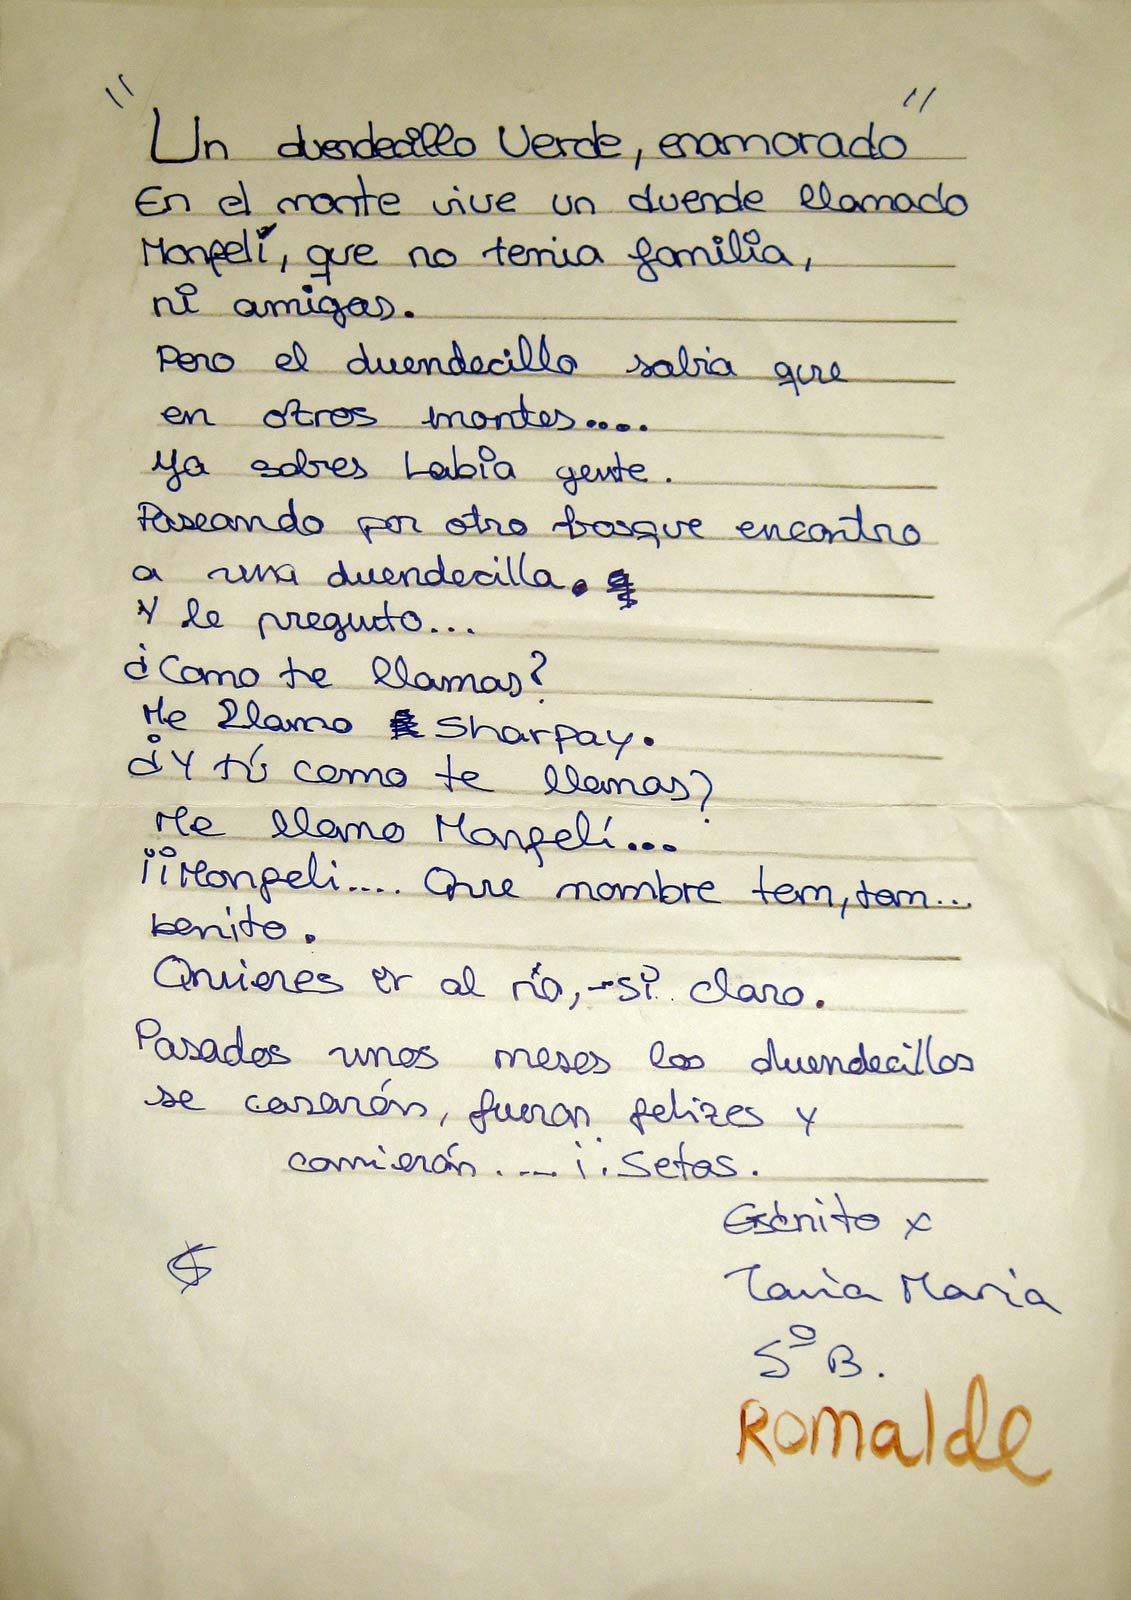 "Un duendecillo Verde, enamorado"
En el monte vive un duende llamado
Monpelí, que no tenia familia,
ni amigos.
Pero el duendecillo sabia que
en otros montes....
ya sabres habia gente.
Paseando por otro bosque encontro
a una duendecilla.
Y le pregunto...
¿Como te llamas?
Me llamo Sharpay.
¿Y tú como te llamas?
Me llamo Monpelí...
¡¡Monpeli.... Que nombre tem, tam...
benito.
Quieres ir al río, -si claro.
Pasados unos meses los duendecillos
se casarón, fueron felizes y
comierón .... ¡¡Setas.
Escrito x
Tania Maria
5º B.
Romalde